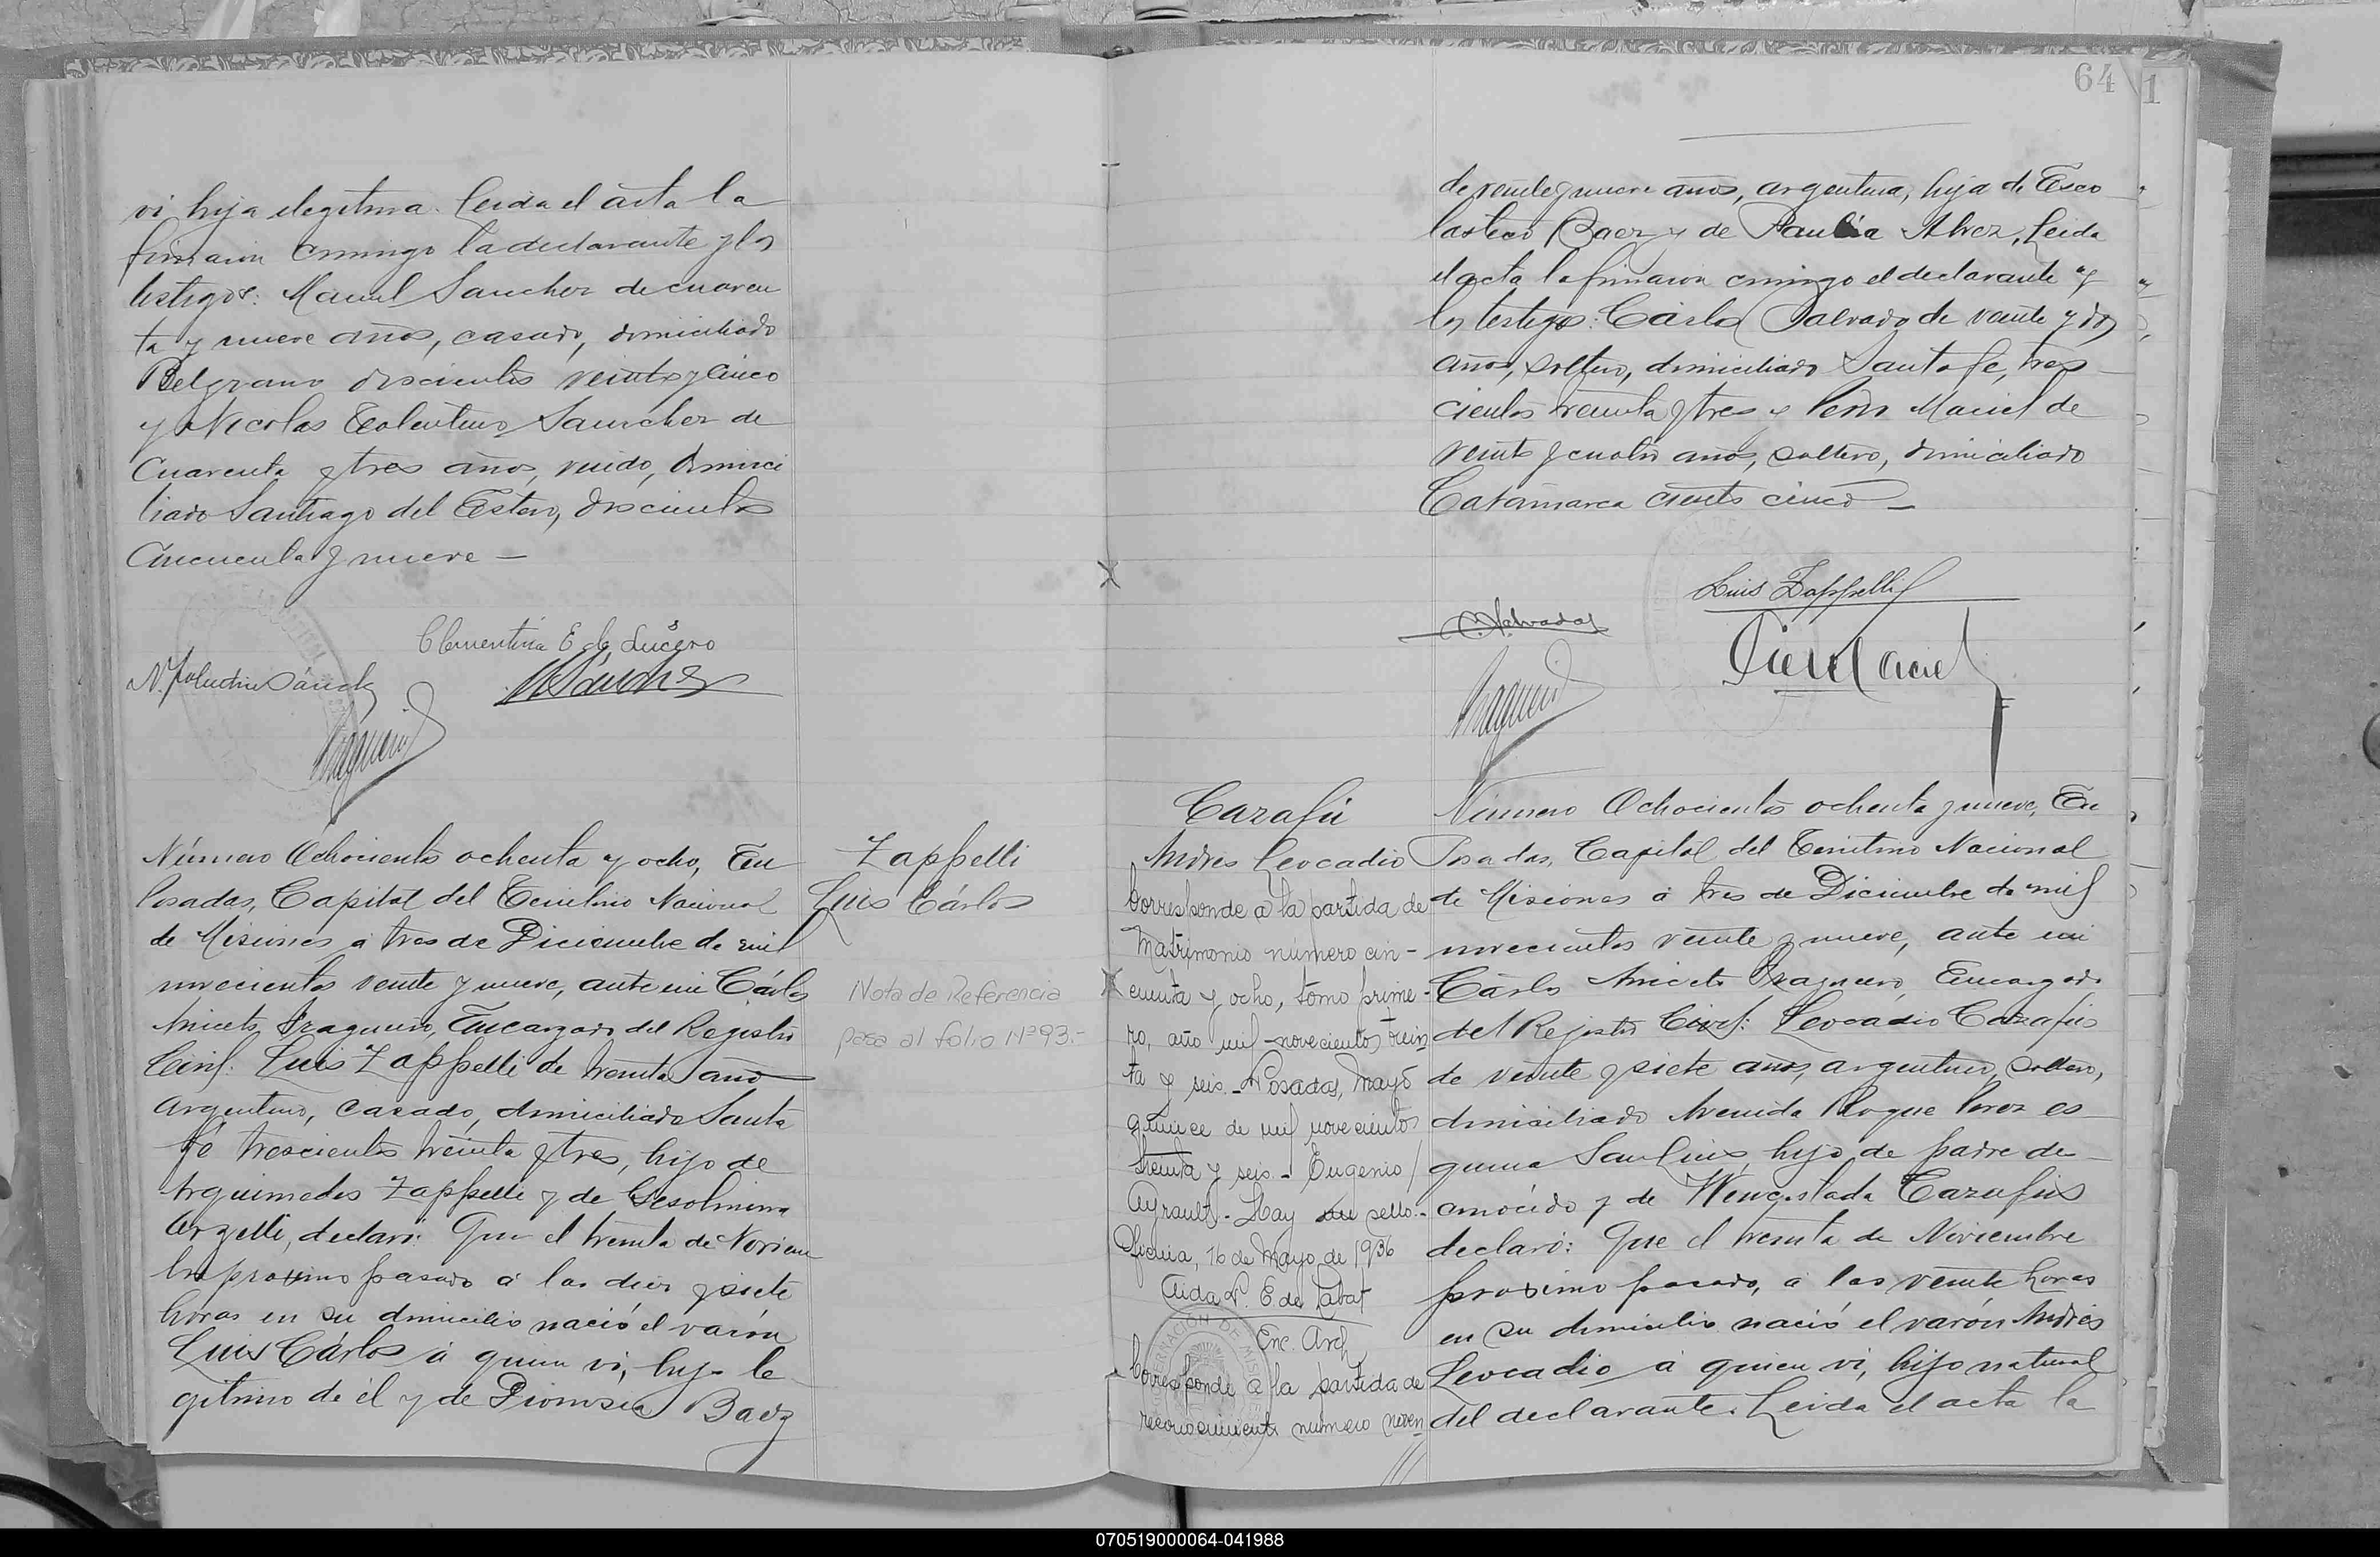 vi, hija ilegitima. Leida el acta la
firmaron conmigo la declarante y los
testigos: Manuel Sanchez de cuaren
ta y nueve años, casado, domiciliado
Belgrano doscientos veinte y cinco
y Nicolas Tolentino Sanchez de
Cuarenta y tres años, viudo, domici
liado Santiago del Estero, doscientos
Cincuenta y nueve —
Clementina E de Lucero
N. Tolentino Sánchez
M Sánchez
Número Ochocientos ochenta y ocho, En
Posadas, Capital del Territorio Nacional
de Misiones á tres de Diciembre de mil
novecientos veinte y nueve, ante mi Cárlos
Aniceto Fragueiro, Encargado del Registro
Civil: Luis Zappelli de treinta años
argentino, casado, domiciliado Santa
Fé trescientos treinta y tres, hijo de
Arquimedes Zappelli y de
declaró: Que el treinta de Noviem
bre proximo pasado á las diez y siete
horas en su domicilio nació el varón
Luis Cárlos á quien vi, hijo le
gitimo de él y de Dionisia Baez
Zappelli
Luis Cárlos
Nota de Referencia
pasa al folio Nº 93.-
64
1
de veinte y nueve años, argentina, hija de Esco
lastico Baez y de Paula Alvez, Leida
el acta la firmaron conmigo el declarante y
los testigos: Cárlos Salvado de veinte y dos
años, soltero, domiciliado Santa fe, tres
cientos treinta y tres y Peón Maciel de
veinte y cuatro años, soltero, domiciliado
Catamarca ciento cinco —
Luis Zappelli
C. Salvado
Maciel
Cazafús
Andrés Leocadio
Corresponde a la partida de
Matrimonio número cin-
cuenta y ocho, tomo prime-
ro, año mil novecientos trein
ta y seis.- Posadas, Mayo
quince de mil novecientos
treinta y seis.- Eugenio
Ayrault.- Hay un sello.-
Oficina, 16 de Mayo de 1936
Aida P. E de
Enc. Arch
Corresponde a la partida de
reconocimiento número noven
Número Ochocientos ochenta y nueve, En
Posadas, Capital del Territorio Nacional
de Misiones á tres de Diciembre de mil
novecientos veinte y nueve, ante mi
Cárlos Aniceto Fragueiro, Encargado
del Registro Civil: Leocadio Cazafús
de veinte y siete años, argentino, soltero,
domiciliado Avenida Roque Perez es
quina San Luis, hijo de padre des
conocido y de Wenceslada Cazafús
declaró: Que el treinta de Noviembre
proximo pasado, á las veinte horas
en su domicilio nació el varón Andrés
Leocadio á quien vi, hijo natural
del declarante. Leida el acta la
070519000064-041988